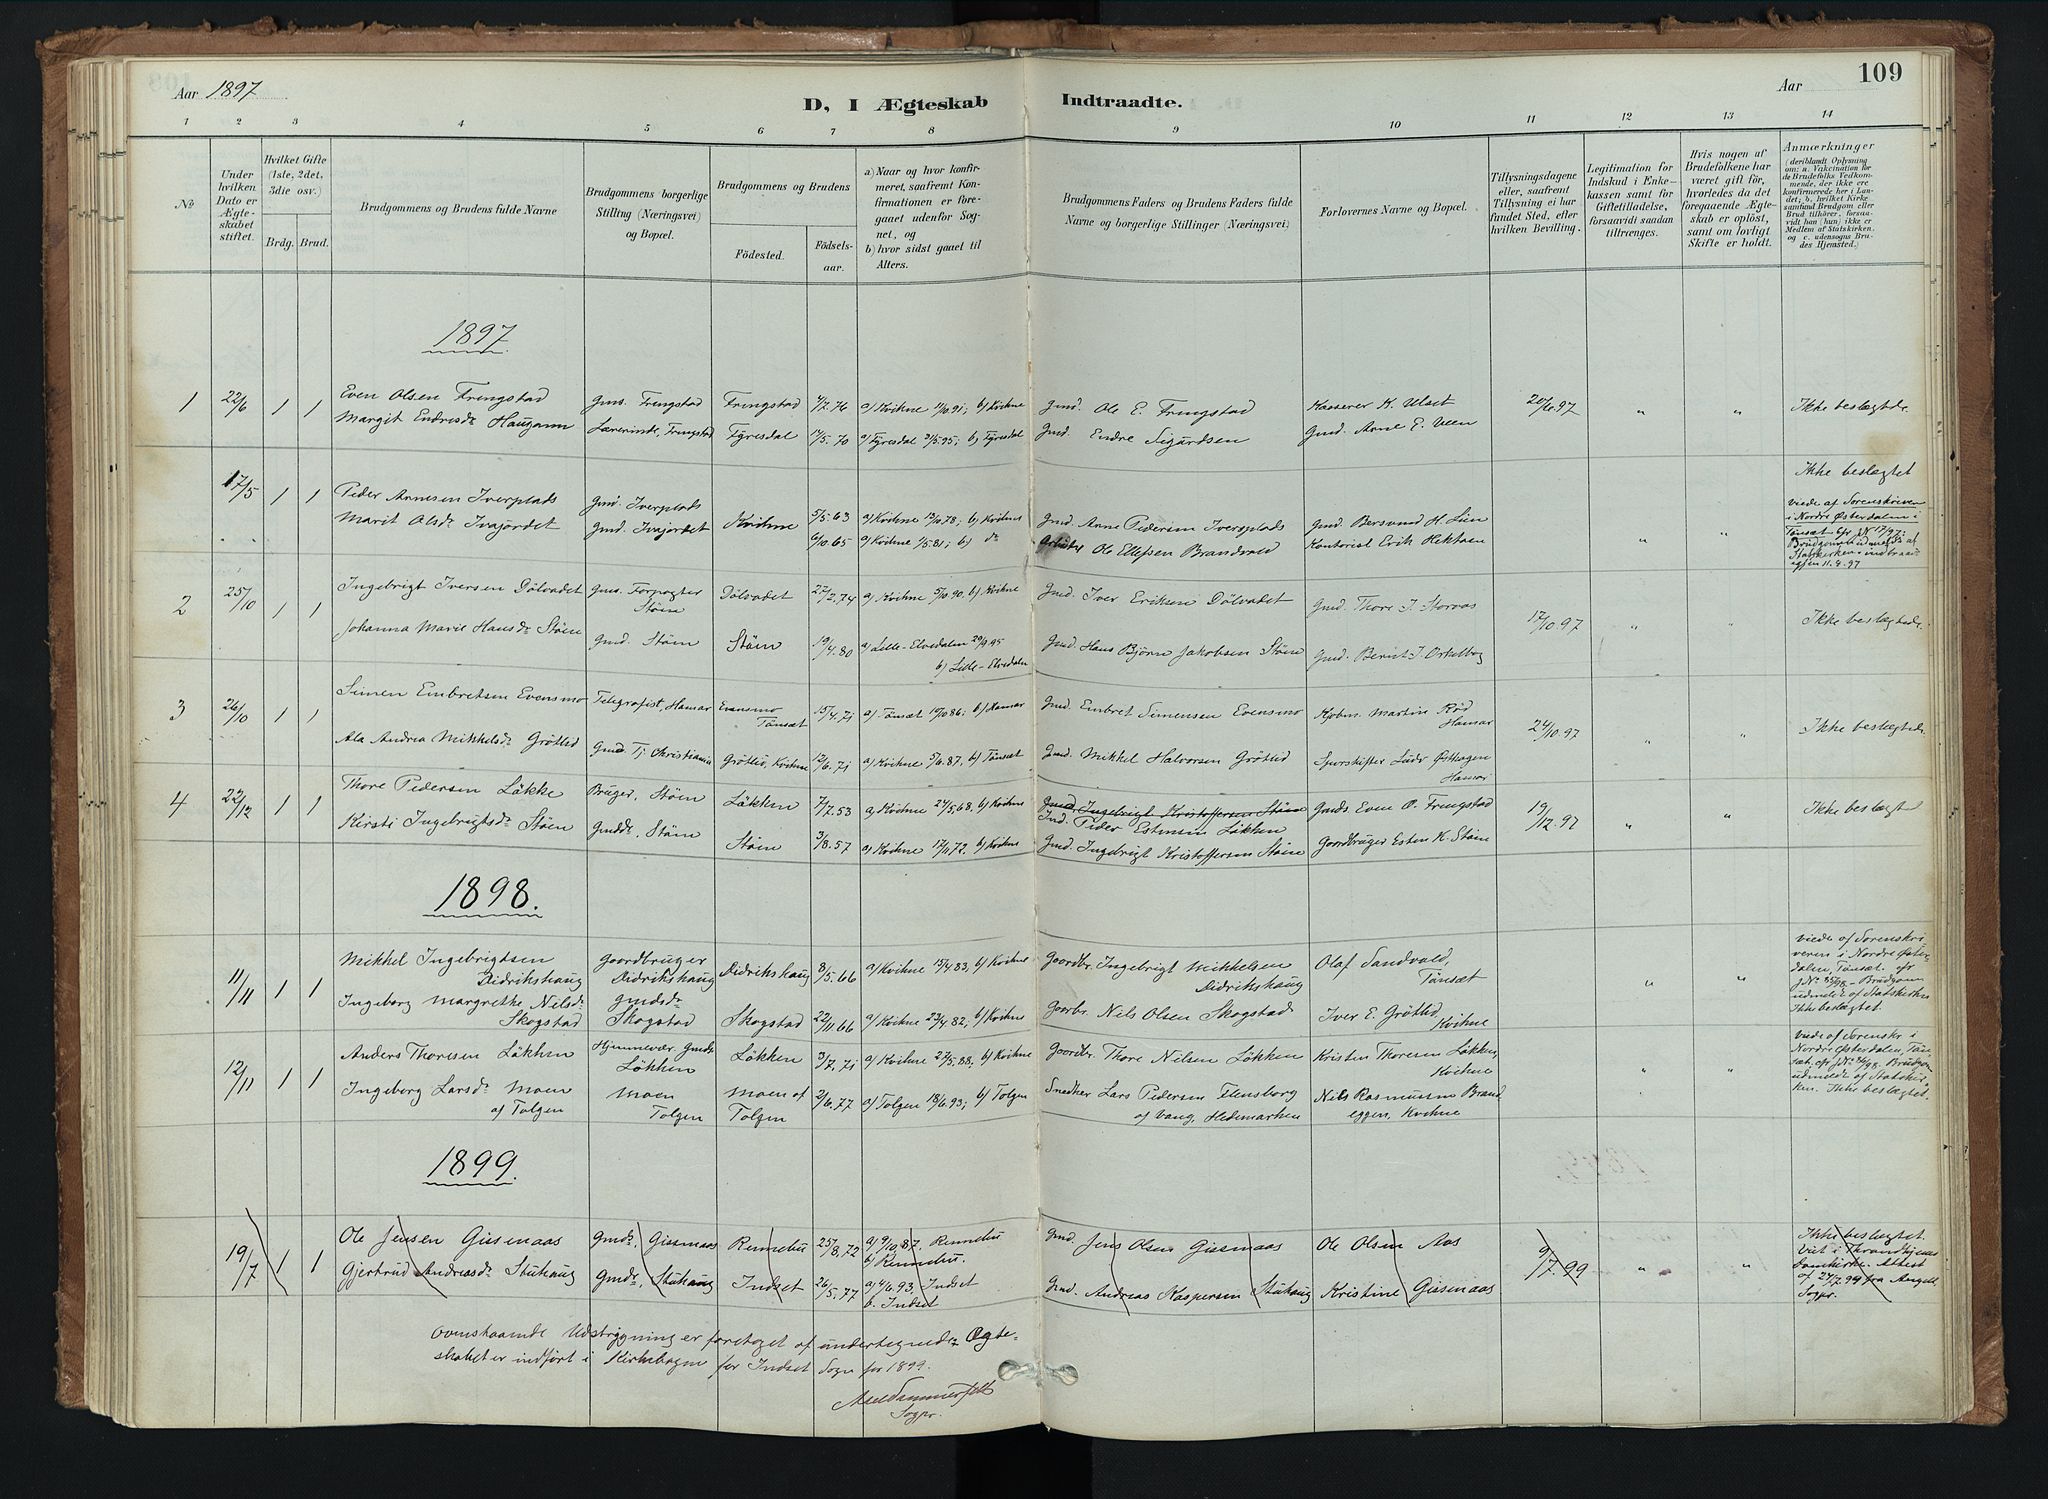 109
Aar 1897
Aar
D, I Ægteskab Indtraadte.
1 2 3 4 5 6 7 8 9 10 11 12 13 14
No
Under hvilken Dato er Ægteskabet stiftet.
Hvilket Gifte (1ste, 2det, 3die osv.)
Brdg. Brud.
Brudgommens og Brudens fulde Navne
Brudgommens borgerlige Stilling (Næringsvei) og Bopæl.
Brudgommens og Brudens
Födested.
Födselsaar.
a) Naar og hvor konfirmeret, saafremt Konfirmationen er foregaaet udenfor Sognet, og
b) hvor sidst gaaet til Alters.
Brudgommens Faders og Brudens Faders fulde Navne og borgerlige Stillinger (Næringsvei)
Forlovernes Navne og Bopæl.
Tillysningsdagene eller, saafremt Tillysning ei har fundet Sted, efter hvilken Bevilling.
Legitimation for Indskud i Enkekassen samt for Giftetilladelse, forsaavidt saadan tiltrænges.
Hvis nogen af Brudefolkene har været gift för, hvorledes da det foregaaende Ægteskab er oplöst, samt om lovligt Skifte er holdt.
Anmærkninger
(deriblandt Oplysning om: a. Vakcination for de Brudefolks Vedkommende, der ikke ere konfirmerede her i Landet; b. hvilket Kirkesamfund Brudgom eller Brud tilhörer, forsaavidt han (hun) ikke er Medlem af Statskirken, og c. udensogns Brudes Hjemsted.)
1897
1 22/6 1 1 Even Olsen Fringstad Gms. Fringstad Fringstad 4/7.76 a) Kvikne 11/10.91; b) Kvikne Gmd. Ole E. Fringstad Kasserer K. Ulset 20/6.97 " " Ikke beslægtede.
Margit Endresdr Haugann Lærerinde, Fringstad Fyresdal 14/5.70 a) Fyresdal 31/5.95; b) Fyresdal Gmd. Endre Sigurdsen Gmd. Arne E. Veen
17/5 1 1 Peder Arnesen Iverplads Gmd. Iverplads Kvikne 5/5.63 a) Kvikne 13/10.78; b) Kvikne Gmd. Arne Pedersen Iverplads Gmd. Bersvend H. Lien " " Ikke beslægtet
Marit Olsdr Ivajordet Gmd. Ivajordet 6/10.65 a) Kvikne 1/5.81; b) do Arbeider Ole Ellefsen Brandvold Kontorist Erik Hektoen
viede af Sorenskriveren
i Nordre Østerdalen i
Tönset
Brudgommen udmeldt af
Statskirken, indtraadt
igjen 11.4.97
2 25/10 1 1 Ingebrigt Iversen Dölvadet Gms. Forpagter Stöen Dölvadet 27/2.74 a) Kvikne 5/10.90. b) Kvikne Gmd. Iver Eriksen Dölvadet Gmd. Thore J. Storvos 17/10.97 " " Ikke beslægtede.
Johanna Marie Hansdr Stöen Gmd. Stöen Stöen 19/4.80 a) Lille-Elvedalen 29/9.95 b) Lille-Elvedalen Gmd. Hans Björn Jakobsen Stöen Gmd. Berint J. Orkelbog
3 26/10 1 1 Simen Embretsen Evensmo Telegrafist, Hamar Evensmo Tönset 15/4.71 a) Tönset 10/10.86; b) Hamar Gmd. Embret Simensen Evensmo Kjøbm. Martin Röd Hamar 24/10.97 " " Ikke beslægtede.
Ala Andrea Mikkelsdr Grötlid Gmd. Tj. Christiania Grötlid, Kvikne 12/6.71 a) Kvikne 5/6.87, b) Tönset Gmd. Mikkel Halvorsen Grötlid Sporskifter Ludv Østhagen Hamar
4 22/12 1 1 Thore Pedersen Løkke Bruger, Stöen Løkken 7/7.53 a) Kvikne 24/5.68, b) Kvikne Gmd. Ingebrigt Kristoffersen Stöen Gmds. Even O. Fringstad 19/12.97 " " Ikke beslægtet
Ind. Peder Estensen Løkken
Kirsti Ingebrigtsdr Stöen Gmddr, Stöen Stöen 3/8.57 a) Kvikne 17/11.72. b) Kvikne Gmd. Ingebrigt Kristoffersen Stöen Gaardbruger Esten K. Stöen
1898.
11/11 1 1 Mikkel Ingebrigtsen Didrikshaug Gaardbruger Didrikshaug Didrikshaug 8/5.66 a) Kvikne 15/4.83, b) Kvikne Gaardbr. Ingebrigt Mikkelsen Didrikshaug Olaf Sandvold, Tönset " "
Ingeborg Margrethe Nilsdr Skogstad Gmdsdr Skogstad Skogstad 22/11.66 a) Kvikne 23/4.82, b) Kvikne Gaarbr. Nils Olsen Skogstad Iver E. Grötlid Kvikne
viede af Sorenskriveren
i Nordre Østerdalen,
Tönset.
Brudgom
udmeldt af Statskirken
Ikke beslægtet.
12/11 1 1 Anders Thoresen Løkken Hjemmevær. Gmds. Løkken Løkken 3/7.71 a) Kvikne 27/5.88, b) Kvikne Gaardbr. Thore Nilsen Løkken Kristen Thoresen Løkken, Kvikne " "
Ingeborg Larsdr Moen af Tolgen Moen Tolgen Moen af Tolgen 2/6.77 a) Tolgen 18/6.93; b) Tolgen Snedker Lars Pedersen Flensborg af Vang, Hedemarken Nils Rasmussen Brandeggen, Kvikne
viede af Sorenskr i
Nordre Østerdalen, Tönset,
Brudgom
udmeldt af Statskirken.
Ikke beslægtet.
1899.
19/7 1 1 Ole Jensen Gissenaas Gmds, Gissenaas Rennebu 25/8.72 a) 9/10.87. Rennebu b) Rennebu. Gmd. Jens Olsen Gissenaas Ole Olsen Aas 9/7.99 " " Ikke beslægtet.
Gjertrud Andreasdr Stuhaug Gmdr, Stuhaug Indset 26/5.77 a) 4/6.93, Indset b. Indset Gmd. Andreas Kaspersen Stuhaug Kristine Gissenaas
Viet i Throndhjems
Domkirke. Attest
af 24/7.99 fra
Sogpr.
Ovenstaaende Udstrygning er foretaget af undertegnede. Ægte-
skabet er indført i Kirkebogen for Indset Sogn for 1899.
Axel Sommerfelt
Sogpr.